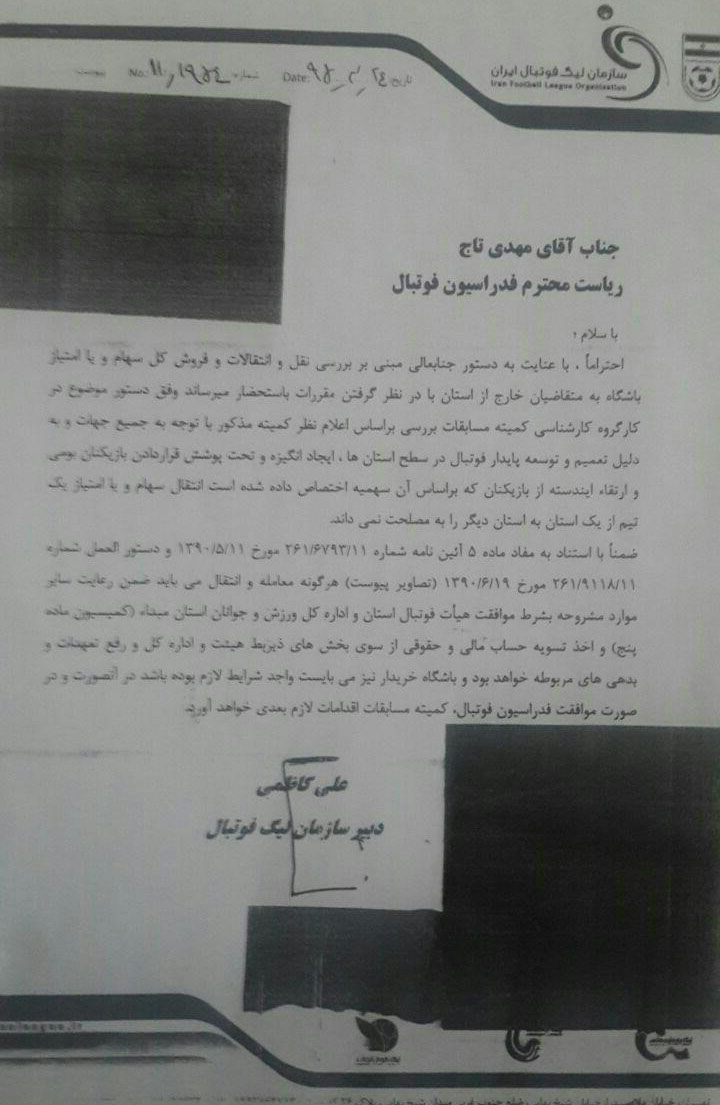 سازمان لیگ فوتبال ایران
Iran Football League Organization
تاریخ: ۹۵_۳_۲۴ Date:
شماره: No:
جناب آقای مهدی تاج
ریاست محترم فدراسیون فوتبال
با سلام ؛
احتراماً ، با عنایت به دستور جنابعالی مبنی بر بررسی نقل و انتقالات و فروش کل سهام و یا امتیاز
باشگاه به متقاضیان خارج از استان با در نظر گرفتن مقررات باستحضار میرساند وفق دستور موضوع در
کارگروه کارشناسی کمیته مسابقات بررسی براساس اعلام نظر کمیته مذکور با توجه به جمیع جهات و به
دلیل تعمیم و توسعه پایدار فوتبال در سطح استان ها ، ایجاد انگیزه و تحت پوشش قراردادن بازیکنان بومی
و ارتقاء ایندسته از بازیکنان که براساس آن سهمیه اختصاص داده شده است انتقال سهام و یا امتیاز یک
تیم از یک استان به استان دیگر را به مصلحت نمی داند.
ضمناً با استناد به مفاد ماده ۵ آئین نامه شماره ۲۶۱/۶۷۹۳/۱۱ مورخ ۱۳۹۰/۵/۱۱ و دستور العمل شماره
۲۶۱/۹۱۱۸/۱۱ مورخ ۱۳۹۰/۶/۱۹ (تصاویر پیوست) هرگونه معامله و انتقال می باید ضمن رعایت سایر
موارد مشروحه بشرط موافقت هیأت فوتبال استان و اداره کل ورزش و جوانان استان مبداء (کمیسیون ماده
پنج) و اخذ تسویه حساب مالی و حقوقی از سوی بخش های ذیربط هیئت و اداره کل و رفع تعهدات و
بدهی های مربوطه خواهد بود و باشگاه خریدار نیز می بایست واجد شرایط لازم بوده باشد در آنصورت و در
صورت موافقت فدراسیون فوتبال، کمیته مسابقات اقدامات لازم بعدی خواهد آورد.
علی کاظمی
دبیر سازمان لیگ فوتبال